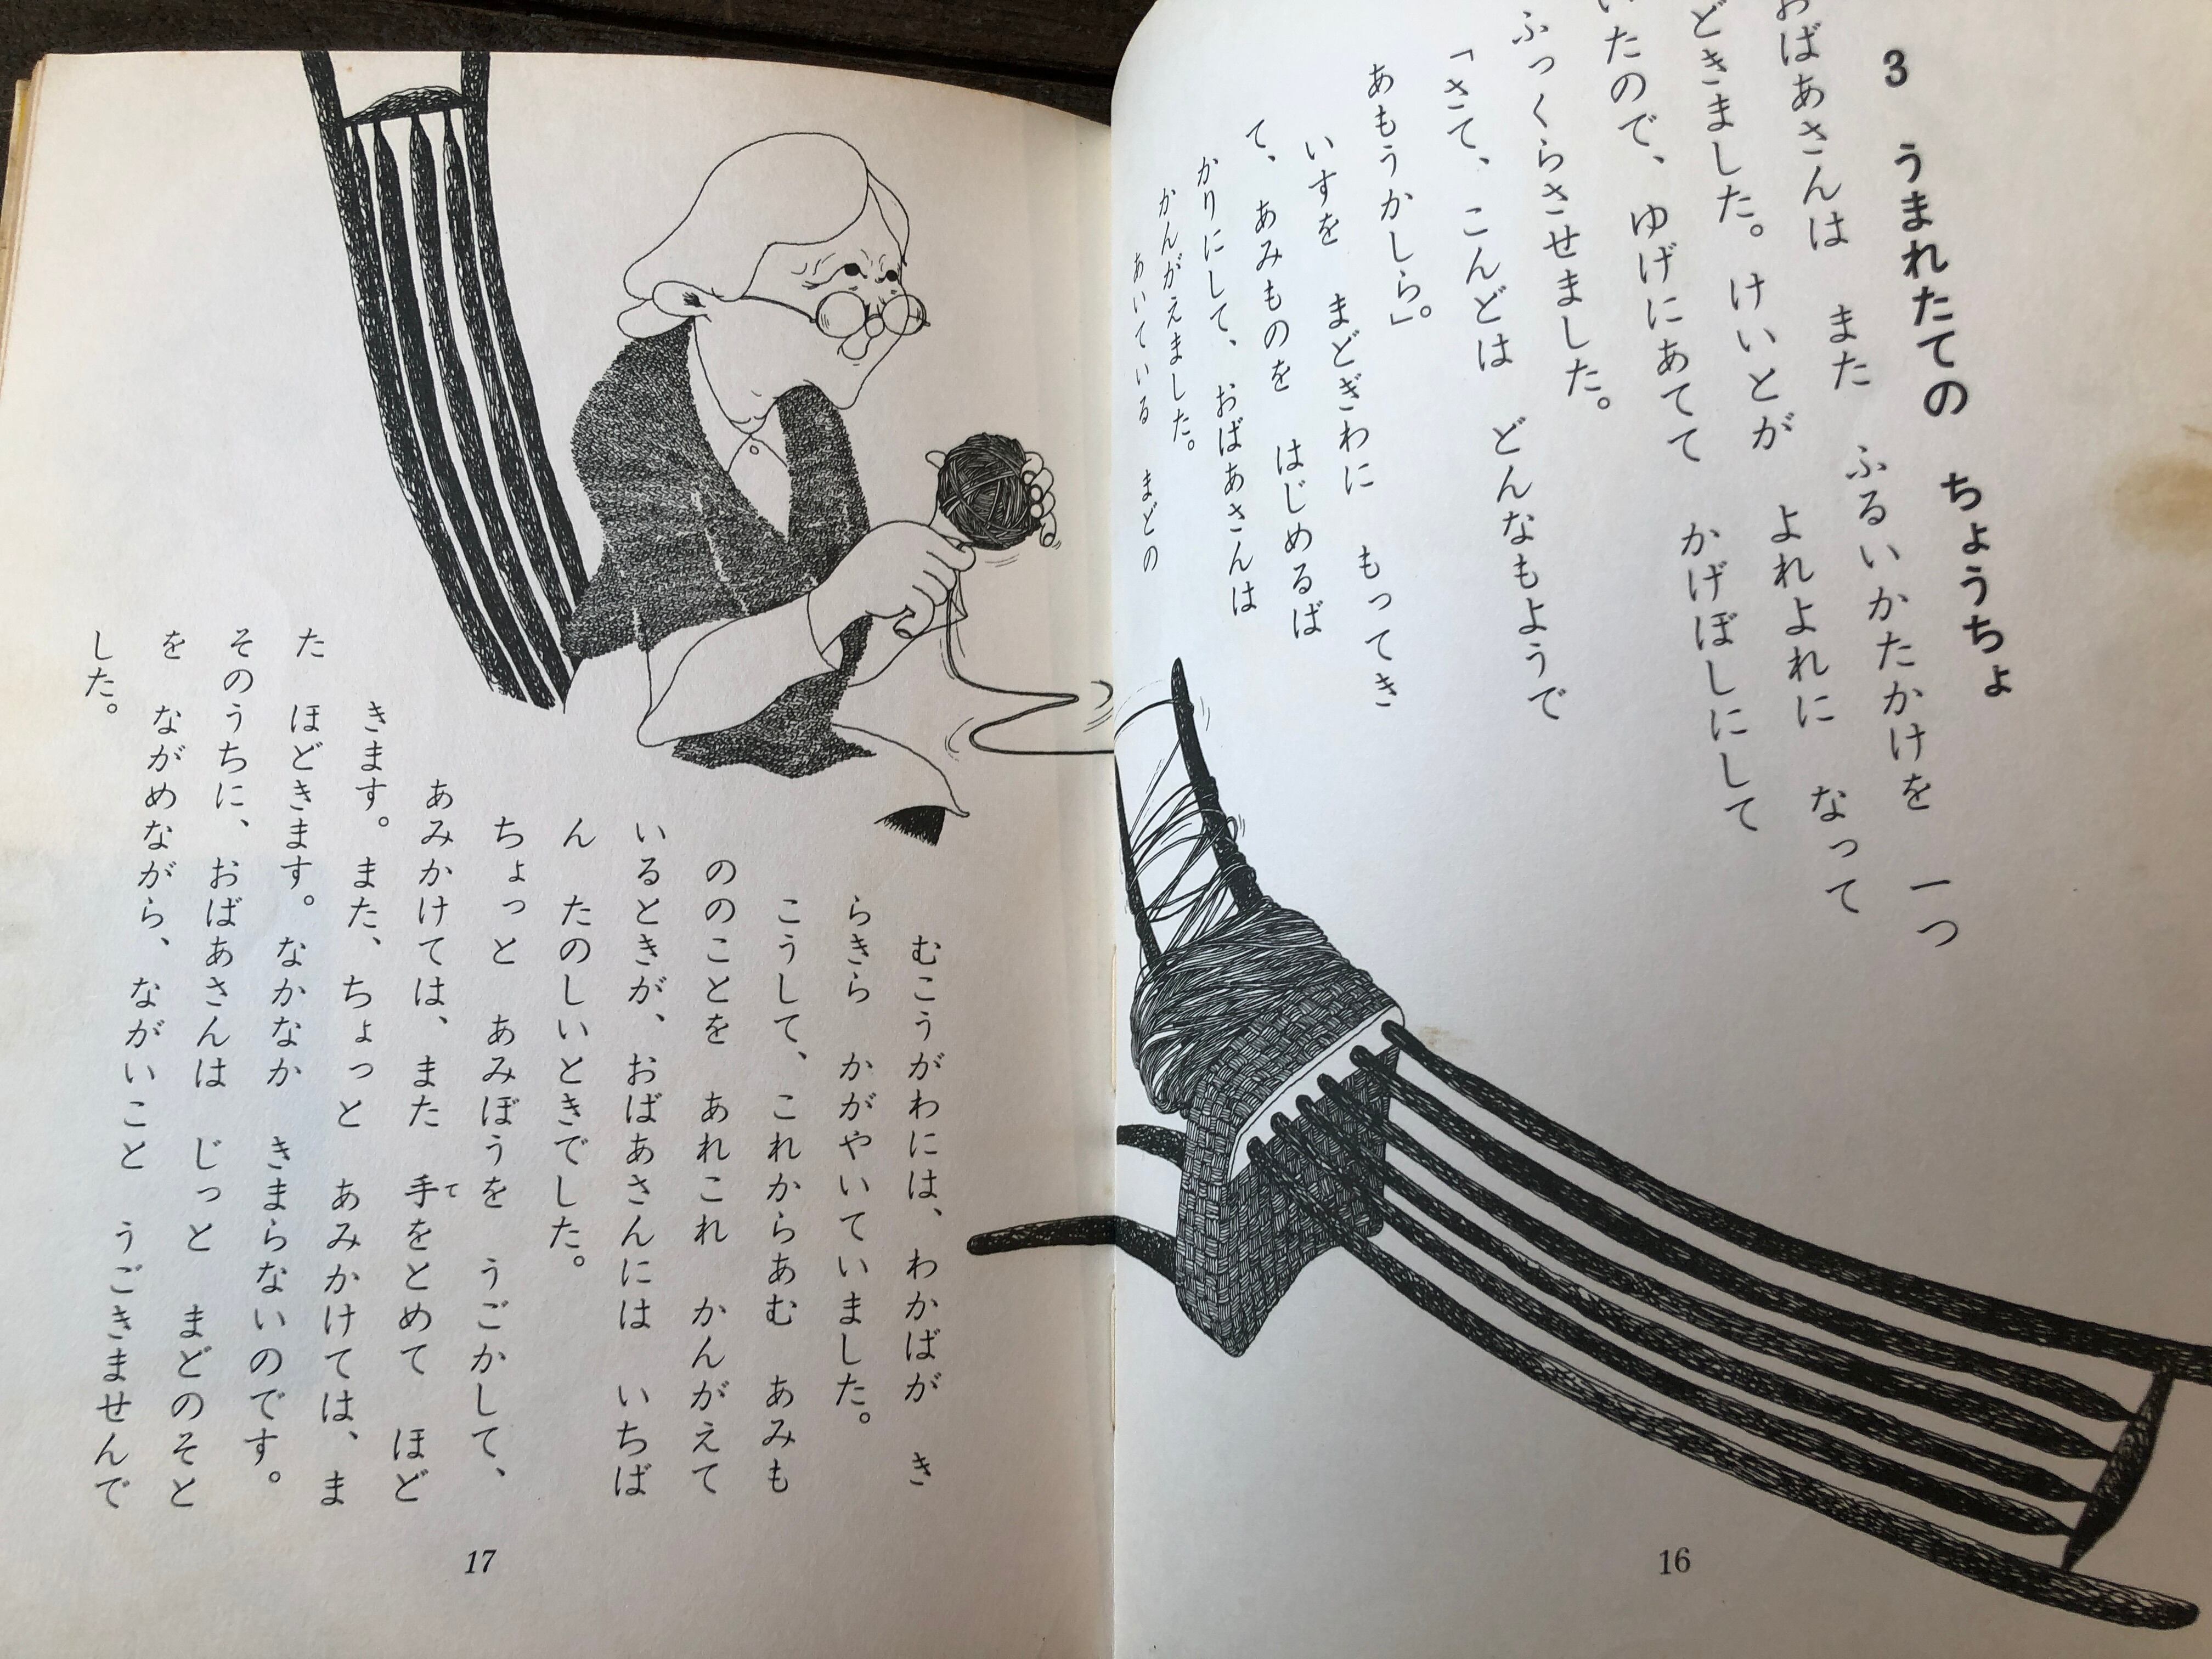 3 うまれたての ちょうちょ
おばあさんは また ふるいかたかけを 一つ
どきました。けいとが よれよれに なって
いたので、ゆげにあてて かげぼしにして
ふっくらさせました。
「さて、こんどは どんなもようで
あもうかしら。」
いすを まどぎわに もってき
て、あみものを はじめるば
かりにして、おばあさんは
かんがえました。
あいている まどの
16
むこうがわには、わかばが き
らきら かがやいていました。
こうして、これからあむ あみも
ののことを あれこれ かんがえて
いるときが、おばあさんには いちば
ん たのしいときでした。
ちょっと あみぼうを うごかして、
あみかけては、また 手てをとめて ほど
きます。また、ちょっと あみかけては、ま
た ほどきます。なかなか きまらないのです。
そのうちに、おばあさんは じっと まどのそと
を ながめながら、ながいこと うごきませんで
した。
17